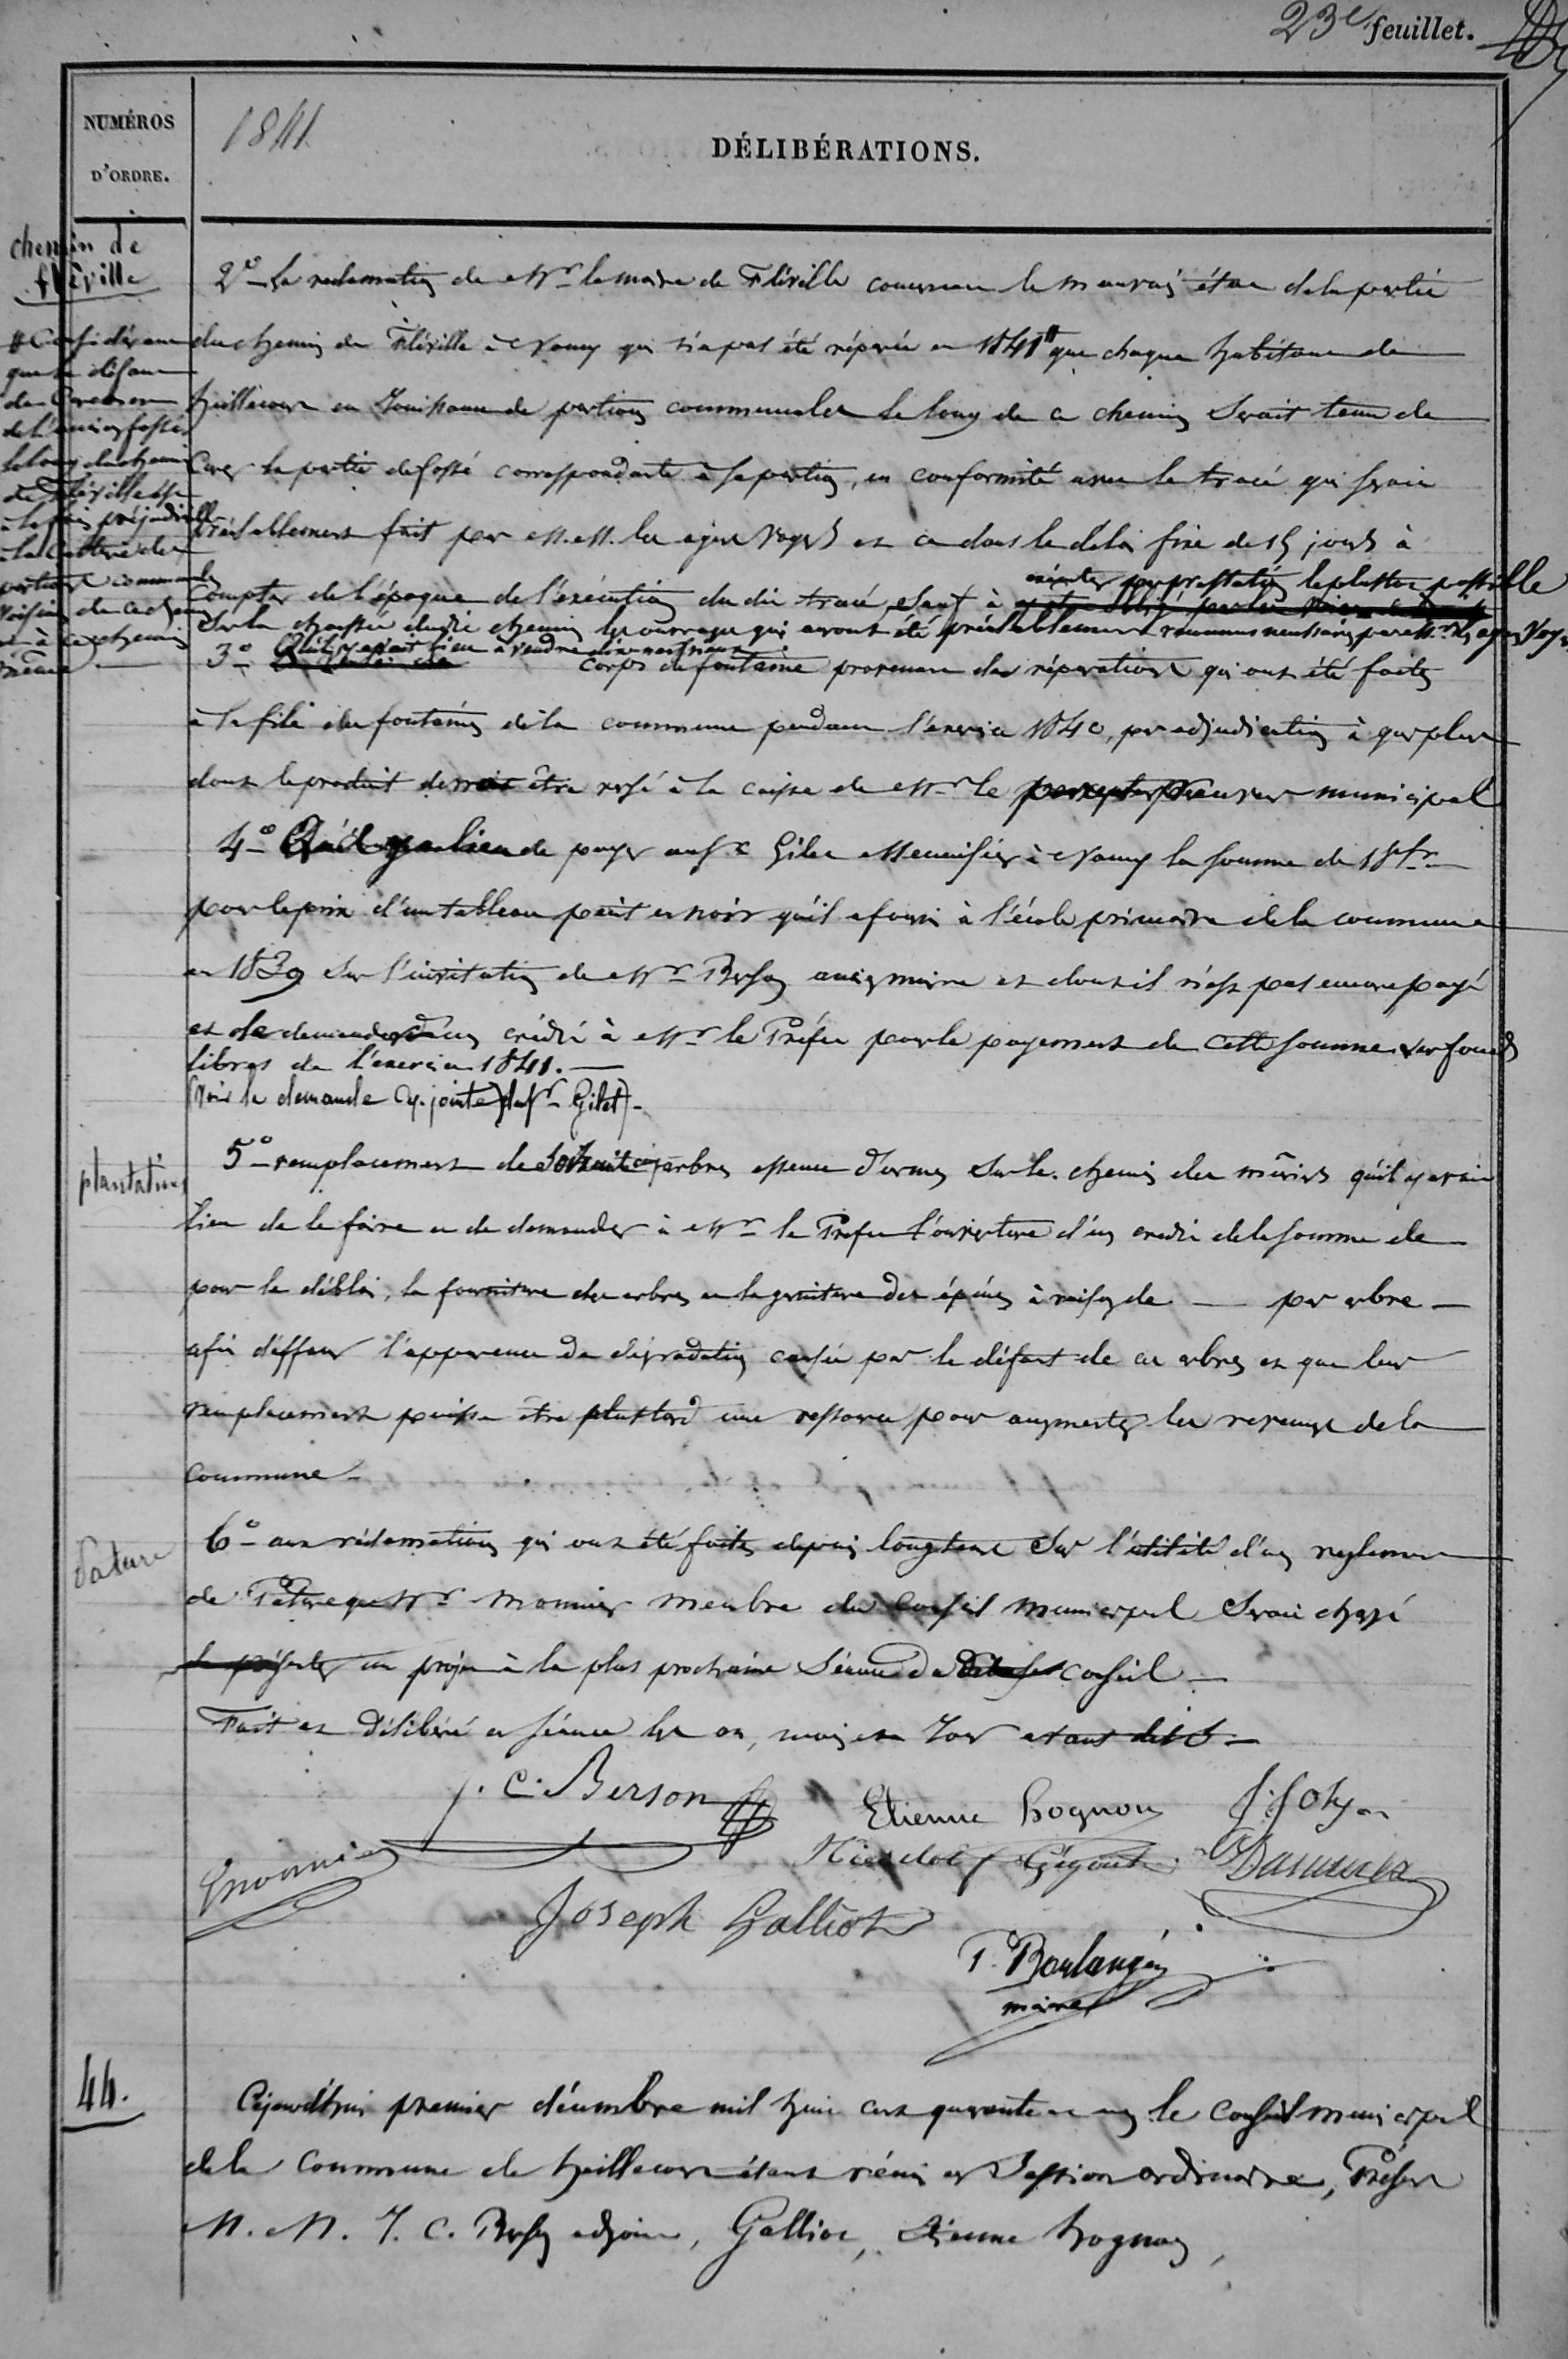 23e feuillet.
NUMÉROS
D'ORDRE.
1841
DÉLIBÉRATIONS.
chemin de
fléville
# Considérant
que le défaut
de
de l'ancien fossé
le long du chemin
de Fléville est
à la fois préjudiciable
à la culture des
portions communales
voisines de ce chemin
et à ce chemin
même
2° La reclamation de Mr le maire de Fléville concernant le mauvais état de la partie
du chemin de Fléville à Nancy qui n'a pas été réparée en 1841 # que chaque habitant de
heillecourt en Jouissance de portions communales le long de ce chemin serait tenu de
Curer la partie de fossé correspondante à sa portion, en conformité avec le tracé qui serait
préalablement fait par M.M. les agens voyers et ce dans le délai fixé de 15 jours à
compter de l'époque de l'exécution du dit tracé, sauf à exécuter par prestation le plustot possible
sur la chaussée du dit chemin les ouvrages qui auront été préalablement reconnus nécessaires par M.rs les agens Voyers
3° Qu'il y avait lieu à vendre corps de fontaine provenant des réparations qui ont été faites
à la file des fontaines de la commune pendant l'exercice 1840, par adjudication à qui plus
dont le produit devrait être versé à la caisse de Mr le receveur municipal
4° Qu'il y a lieu de payer au Sr Gilet Menuisier à Nancy la somme de 15 fr
pour le prix d'un tableau peint en noir qu'il a fourni à l'école primaire de la commune
en 1839 sur l'invitation de Mr Berson ancien maire et dont il n'est pas encore payé
et de demander un crédit à Mr le Préfet pour le payement de cette somme sur fonds
libres de l'exercice 1841.
(Voir la demande cy-jointe du Sr Gilet).
plantations
5° remplacement de soixante cinq arbres essence d'ormes sur le chemin des mûriers qu'il y avait
lieu de le faire et de demander à Mr le Préfet l'ouverture d'un crédit de la somme de
pour le déblai, la fourniture des arbres et la garniture des épines à raison de — par arbre —
afin d'effacer l'apparence de dégradation causée par le défaut de ces arbres et que leur
remplacement puisse être plustard une ressource pour augmenter les revenus de la
commune
Pature
6° aux réclamations qui ont été faites depuis longtems sur l'utilité d'un reglement
de Pature que Mr monnier membre du Conseil municipal serait chargé
de présenter un projet à la plus prochaine Séance du conseil
Fait et Délibéré en séance les an, mois et Jour avant dits
J. C. Berson
Etienne hognon
J. Joly
Monnier
Gégout
Joseph Galliot
P. Boulangé
maire
44.
Cejourd'hui premier décembre mil huit cent quarante et un le conseil municipal
de la Commune de heillecourt étant réuni en Session ordinaire, Présens
M. M. J. C. Berson adjoint, Galliot, Etienne hognon,